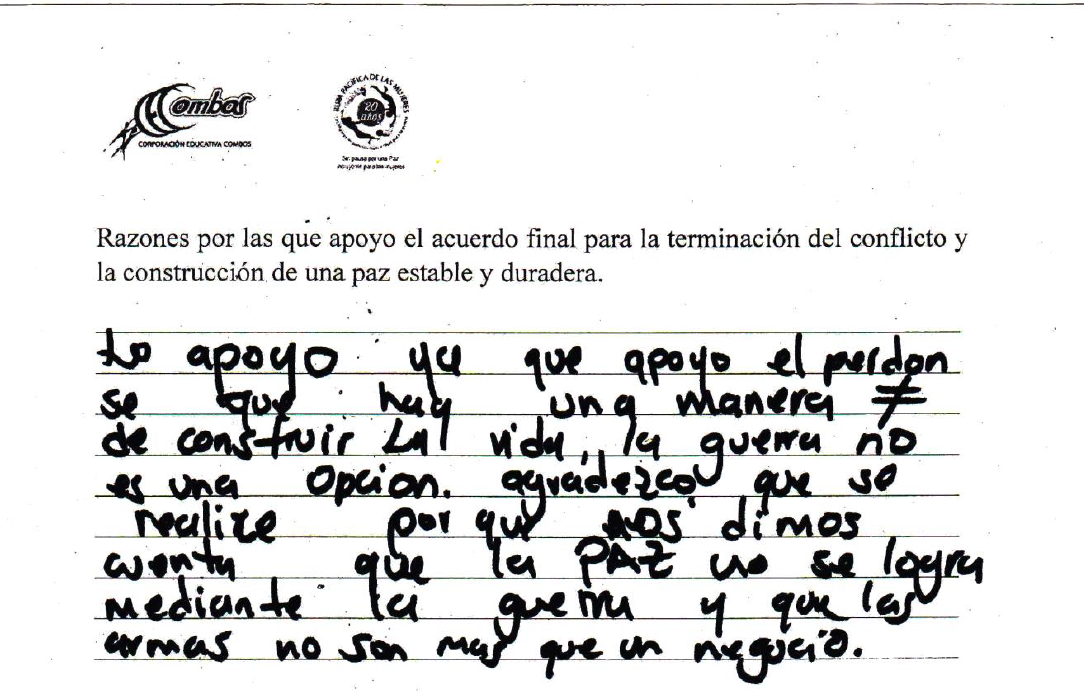 Combos
CORPORACIÓN EDUCATIVA COMBOS
RUTA PACÍFICA DE LAS MUJERES
20
años
Sin pausa por una Paz
incluyente para las mujeres
Razones por las que apoyo el acuerdo final para la terminación del conflicto y
la construcción de una paz estable y duradera.
Lo apoyo ya que apoyo el perdon
se que hay una manera ≠
de construir La vida, la guerra no
es una opcion. agradezco que se
realize por que nos dimos
cuenta que la PAZ no se logra
mediante la guerra y que las
armas no son mas que un negocio.